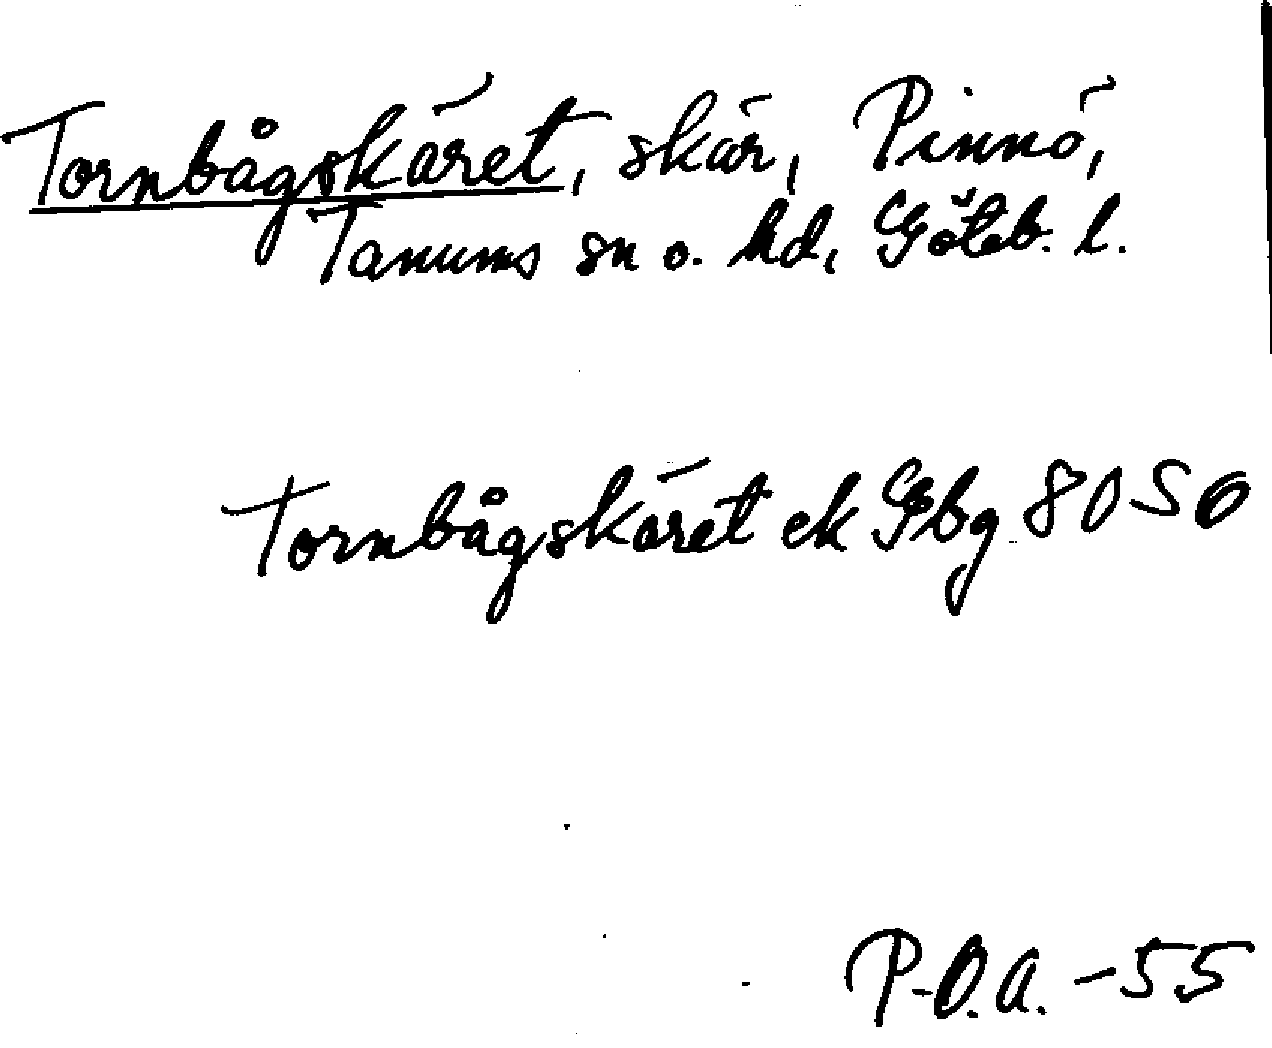 Tornbågskäret, skär, Pinnö,
Tanums sn o. hd, Göteb. l.
Tornbågskäret ek Gbg 8050
P-O.A. -55